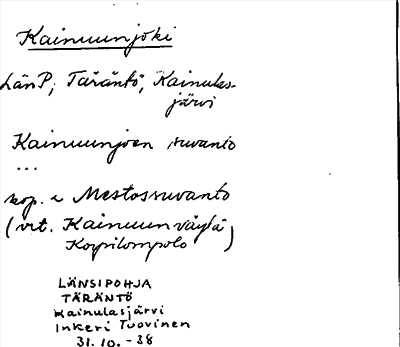 Kainuunjoki
LänP; Täräntö; Kainulas-
järvi
Kainuunjoen suvanto
...
kop. ~ Mestossuvanto
(vrt. Kainuun väylä
Korpilompolo)
LÄNSIPOHJA
TÄRÄNTÖ
Kainulasjärvi
Inkeri Tuovinen
31.10.-38